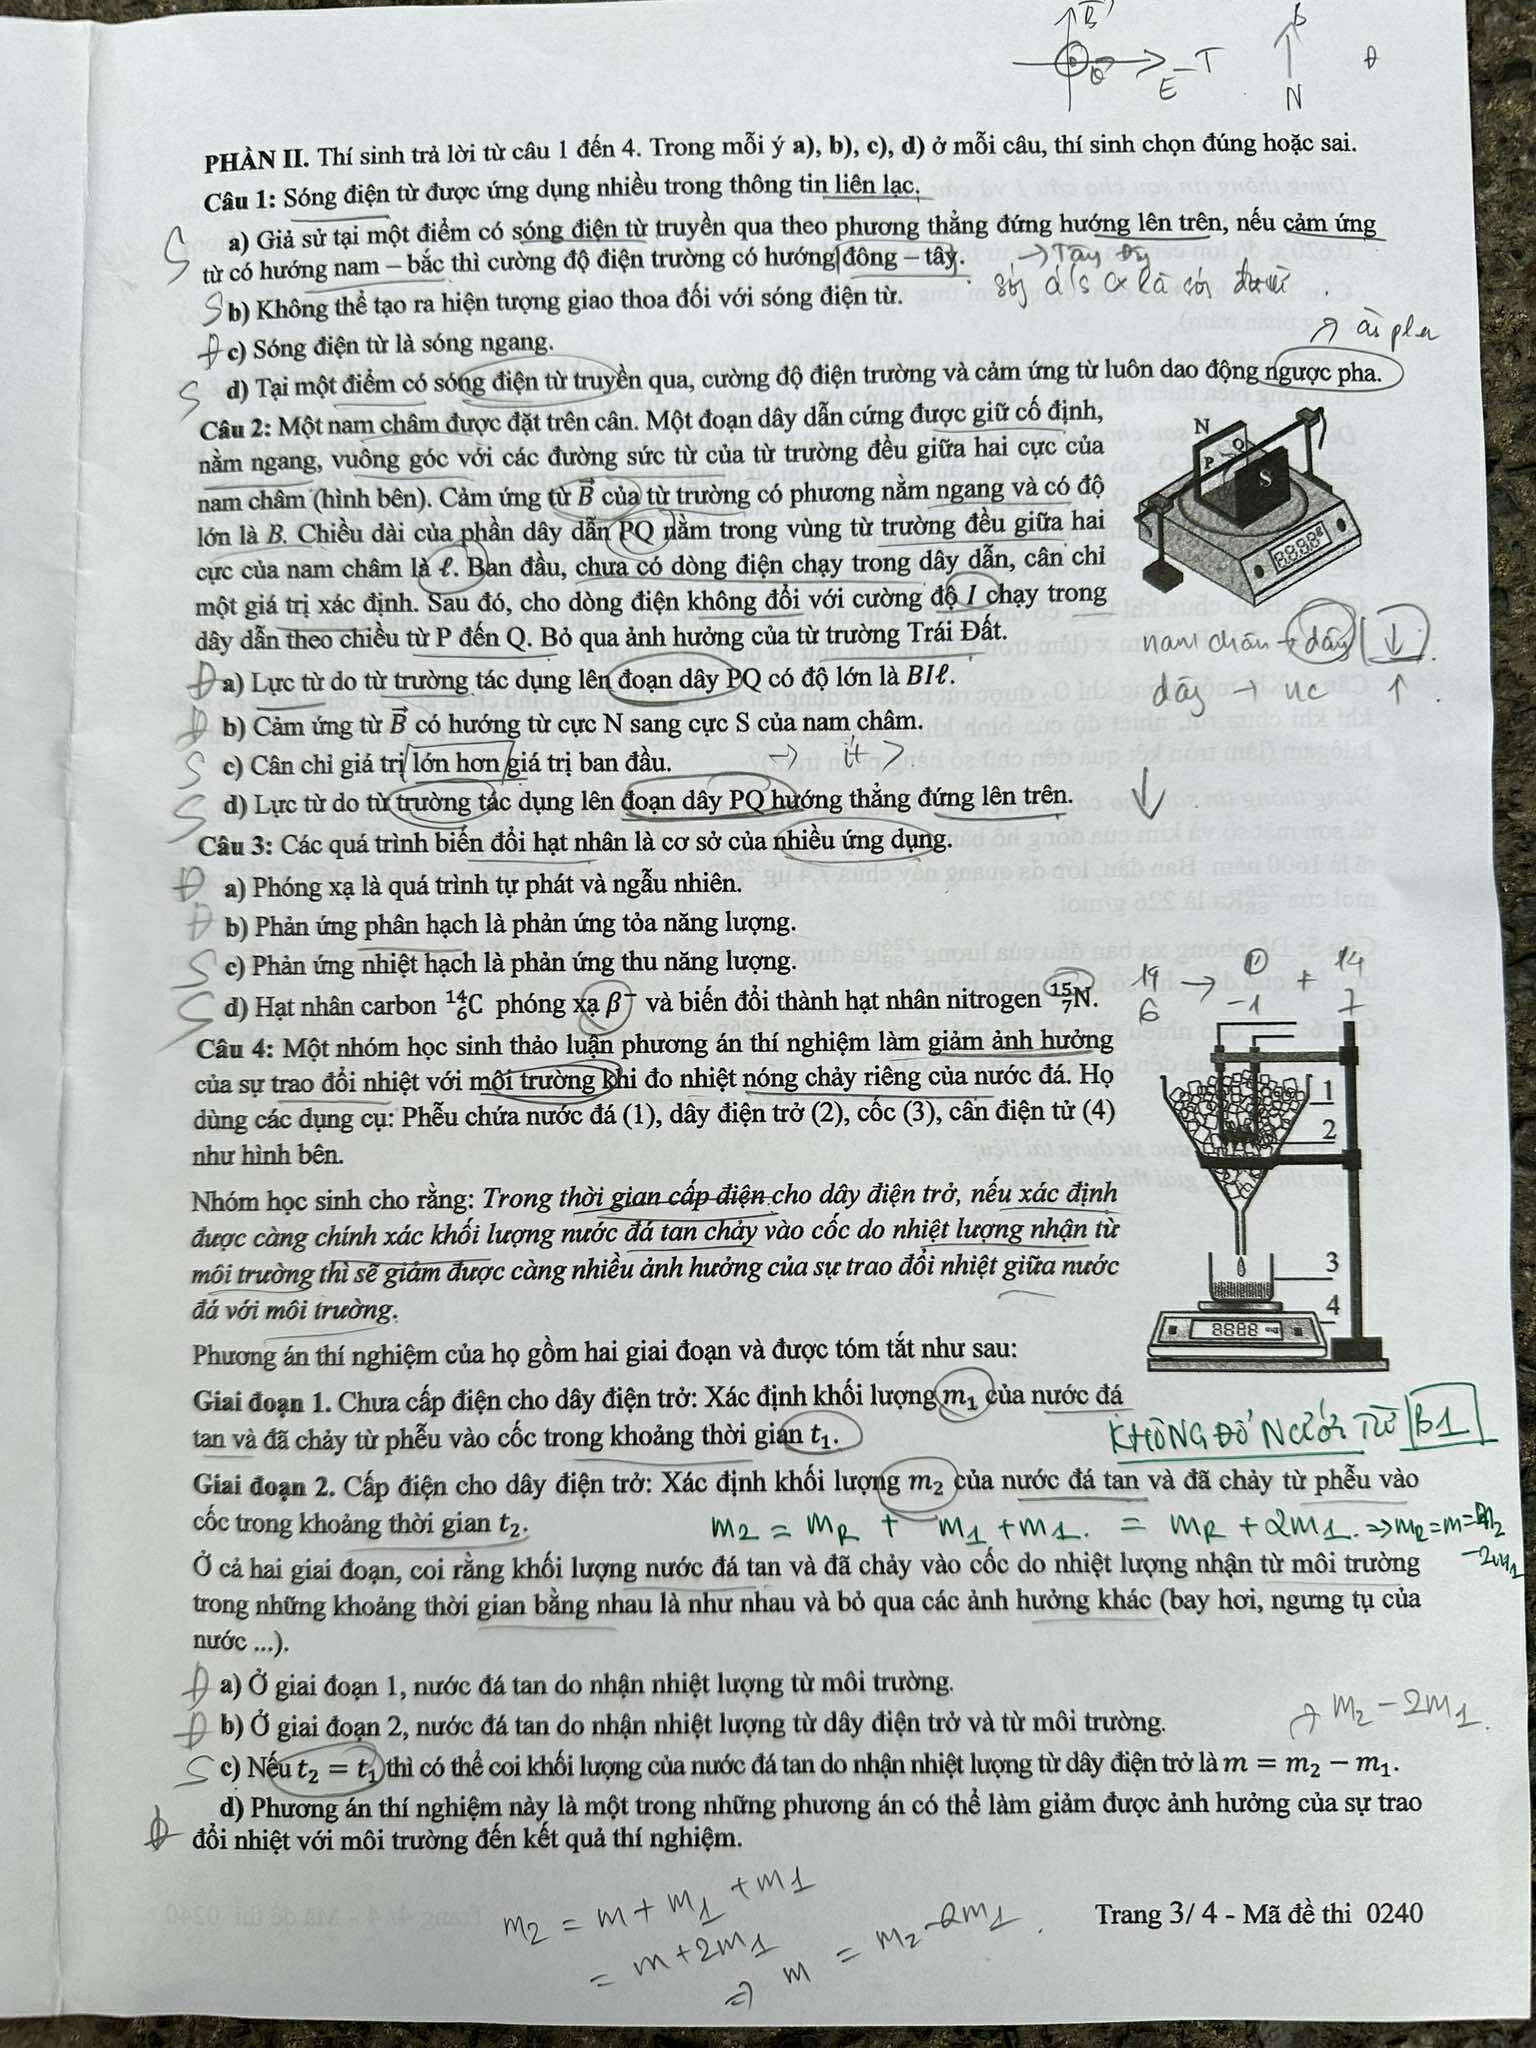 B
E – T
B
N
PHẦN II. Thí sinh trả lời từ câu 1 đến 4. Trong mỗi ý a), b), c), d) ở mỗi câu, thí sinh chọn đúng hoặc sai.
Câu 1: Sóng điện từ được ứng dụng nhiều trong thông tin liên lạc.
S a) Giả sử tại một điểm có sóng điện từ truyền qua theo phương thẳng đứng hướng lên trên, nếu cảm ứng
từ có hướng nam – bắc thì cường độ điện trường có hướng đông – tây. → Tây
S b) Không thể tạo ra hiện tượng giao thoa đối với sóng điện từ.
Đ c) Sóng điện từ là sóng ngang.
S d) Tại một điểm có sóng điện từ truyền qua, cường độ điện trường và cảm ứng từ luôn dao động ngược pha.
Câu 2: Một nam châm được đặt trên cân. Một đoạn dây dẫn cứng được giữ cố định,
nằm ngang, vuông góc với các đường sức từ của từ trường đều giữa hai cực của
nam châm (hình bên). Cảm ứng từ B⃗ của từ trường có phương nằm ngang và có độ
lớn là B. Chiều dài của phần dây dẫn PQ nằm trong vùng từ trường đều giữa hai
cực của nam châm là ℓ. Ban đầu, chưa có dòng điện chạy trong dây dẫn, cân chỉ
một giá trị xác định. Sau đó, cho dòng điện không đổi với cường độ I chạy trong
dây dẫn theo chiều từ P đến Q. Bỏ qua ảnh hưởng của từ trường Trái Đất.
N
Q
P
S
nam châm → dây ↓
dây → nc ↑
Đ a) Lực từ do từ trường tác dụng lên đoạn dây PQ có độ lớn là BIℓ.
Đ b) Cảm ứng từ B⃗ có hướng từ cực N sang cực S của nam châm.
S c) Cân chỉ giá trị lớn hơn giá trị ban đầu. → ít >
S d) Lực từ do từ trường tác dụng lên đoạn dây PQ hướng thẳng đứng lên trên. ↓
Câu 3: Các quá trình biến đổi hạt nhân là cơ sở của nhiều ứng dụng.
Đ a) Phóng xạ là quá trình tự phát và ngẫu nhiên.
Đ b) Phản ứng phân hạch là phản ứng tỏa năng lượng.
S c) Phản ứng nhiệt hạch là phản ứng thu năng lượng.
S d) Hạt nhân carbon ¹⁴₆C phóng xạ β⁻ và biến đổi thành hạt nhân nitrogen ¹⁵₇N.
14 → 0 + 14
6 -1 7
Câu 4: Một nhóm học sinh thảo luận phương án thí nghiệm làm giảm ảnh hưởng
của sự trao đổi nhiệt với môi trường khi đo nhiệt nóng chảy riêng của nước đá. Họ
dùng các dụng cụ: Phễu chứa nước đá (1), dây điện trở (2), cốc (3), cân điện tử (4)
như hình bên.
1
2
3
4
Nhóm học sinh cho rằng: Trong thời gian cấp điện cho dây điện trở, nếu xác định
được càng chính xác khối lượng nước đá tan chảy vào cốc do nhiệt lượng nhận từ
môi trường thì sẽ giảm được càng nhiều ảnh hưởng của sự trao đổi nhiệt giữa nước
đá với môi trường.
Phương án thí nghiệm của họ gồm hai giai đoạn và được tóm tắt như sau:
Giai đoạn 1. Chưa cấp điện cho dây điện trở: Xác định khối lượng m₁ của nước đá
tan và đã chảy từ phễu vào cốc trong khoảng thời gian t₁.
KHÔNG ĐỔ NƯỚC TỪ B1
Giai đoạn 2. Cấp điện cho dây điện trở: Xác định khối lượng m₂ của nước đá tan và đã chảy từ phễu vào
cốc trong khoảng thời gian t₂.
m₂ = mR + m₁ + m₁ = mR + 2m₁ ⇒ mR = m = m₂
-2m₁
Ở cả hai giai đoạn, coi rằng khối lượng nước đá tan và đã chảy vào cốc do nhiệt lượng nhận từ môi trường
trong những khoảng thời gian bằng nhau là như nhau và bỏ qua các ảnh hưởng khác (bay hơi, ngưng tụ của
nước ...).
Đ a) Ở giai đoạn 1, nước đá tan do nhận nhiệt lượng từ môi trường.
Đ b) Ở giai đoạn 2, nước đá tan do nhận nhiệt lượng từ dây điện trở và từ môi trường.
→ m₂ – 2m₁.
S c) Nếu t₂ = t₁ thì có thể coi khối lượng của nước đá tan do nhận nhiệt lượng từ dây điện trở là m = m₂ − m₁.
d) Phương án thí nghiệm này là một trong những phương án có thể làm giảm được ảnh hưởng của sự trao
Đ đổi nhiệt với môi trường đến kết quả thí nghiệm.
m₂ = m + m₁ + m₁
= m + 2m₁
⇒ m = m₂ – 2m₁.
Trang 3/ 4 - Mã đề thi 0240